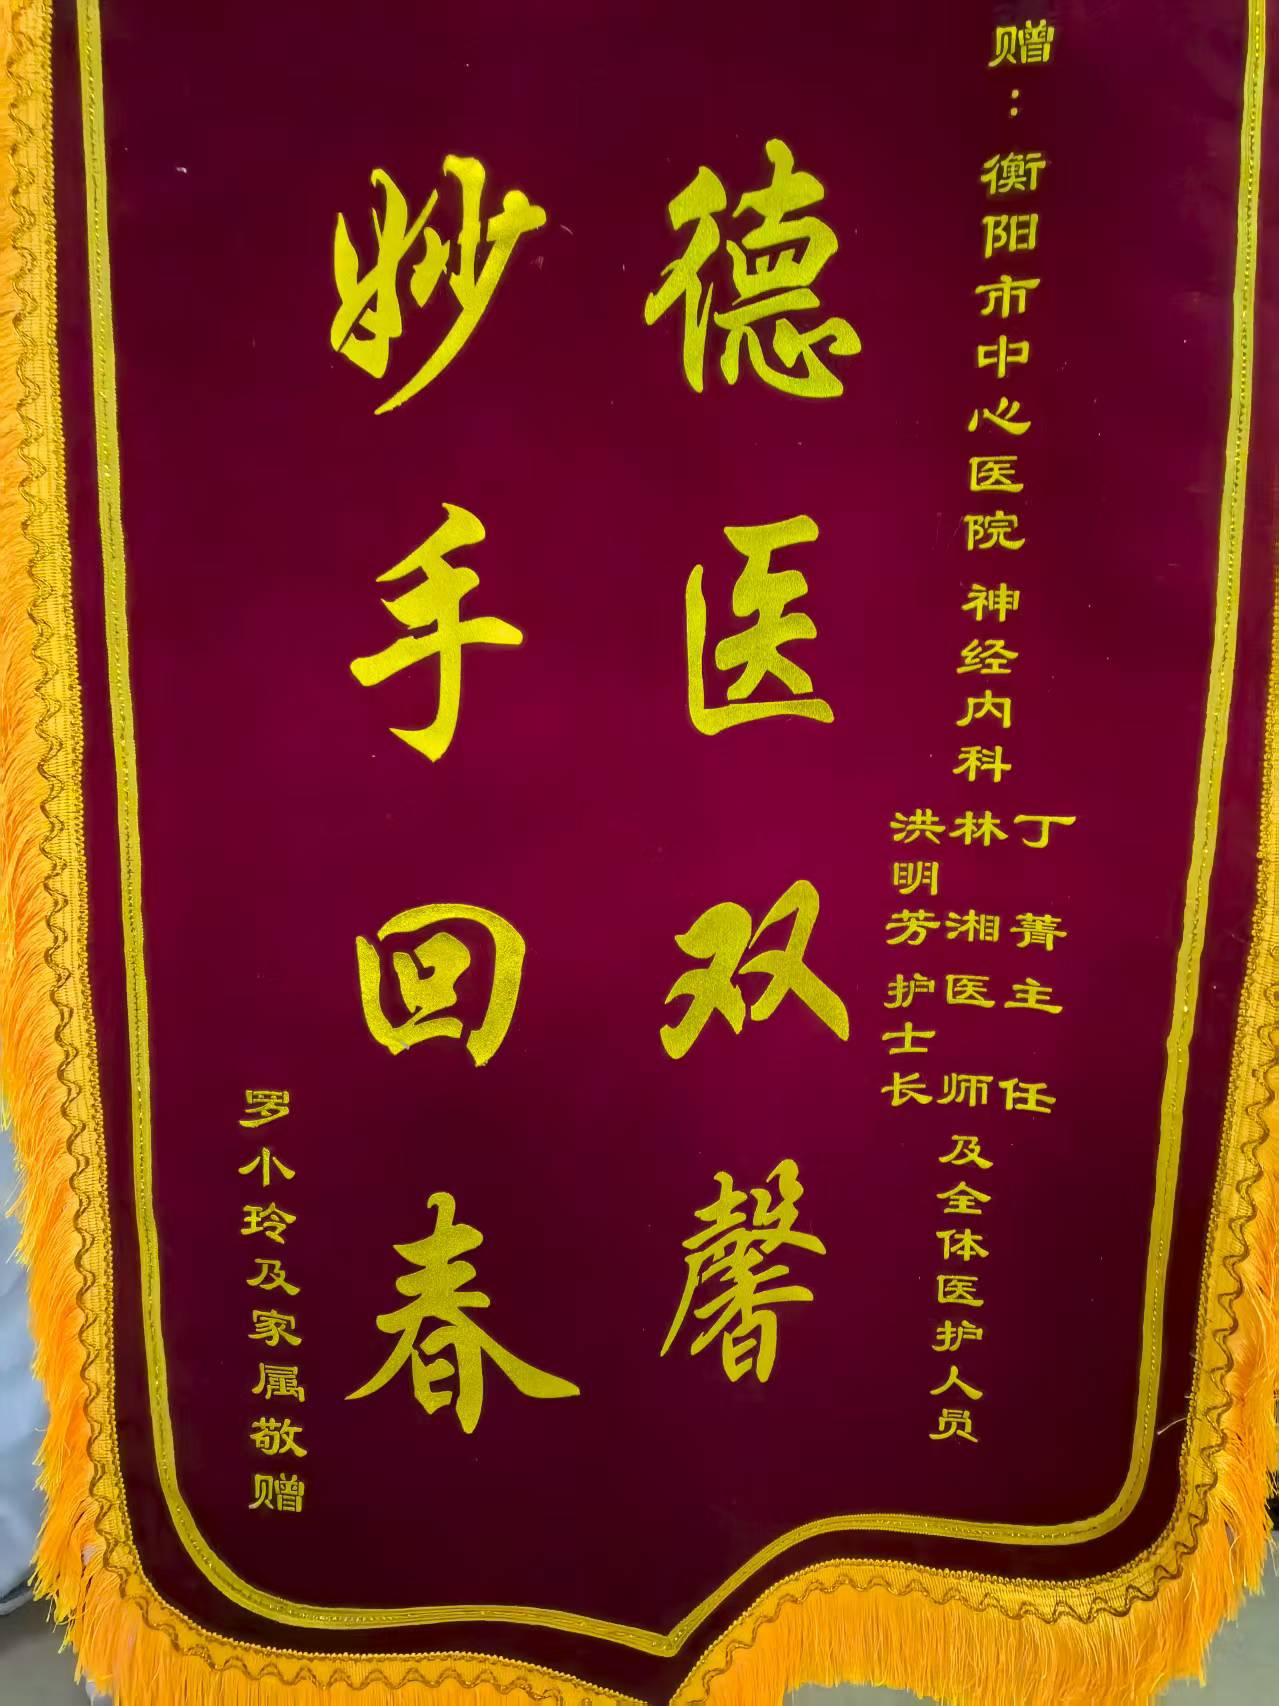 赠：衡阳市中心医院 神经内科
丁菁主任
林湘医师
洪明芳护士长
及全体医护人员
德医双馨
妙手回春
罗小玲及家属敬赠